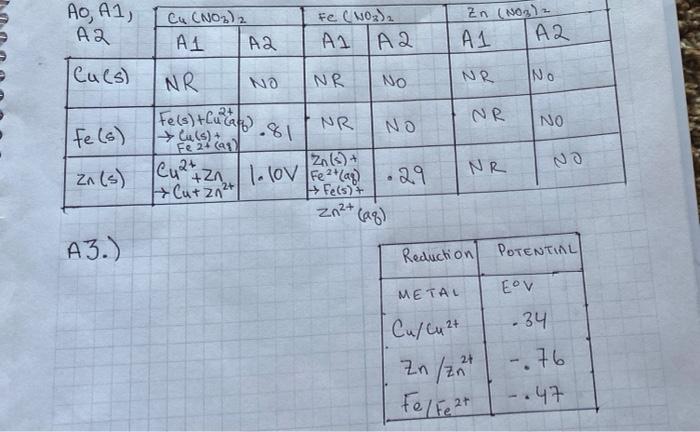 A0, A1, A2
Cu (NO3)2 Fe (NO3)2 Zn (NO3)2
A1 A2 A1 A2 A1 A2
Cu(s) NR NO NR NO NR NO
Fe(s) Fe(s)+Cu2+(aq) → Cu(s)+ Fe2+(aq) .81 NR NO NR NO
Zn(s) Cu2+ +Zn → Cu+Zn2+ 1.10V Zn(s)+ Fe2+(aq) → Fe(s)+ Zn2+(aq) .29 NR NO
A3.)
Reduction POTENTIAL
METAL E°V
Cu/Cu2+ .34
Zn/Zn2+ -.76
Fe/Fe2+ -.47